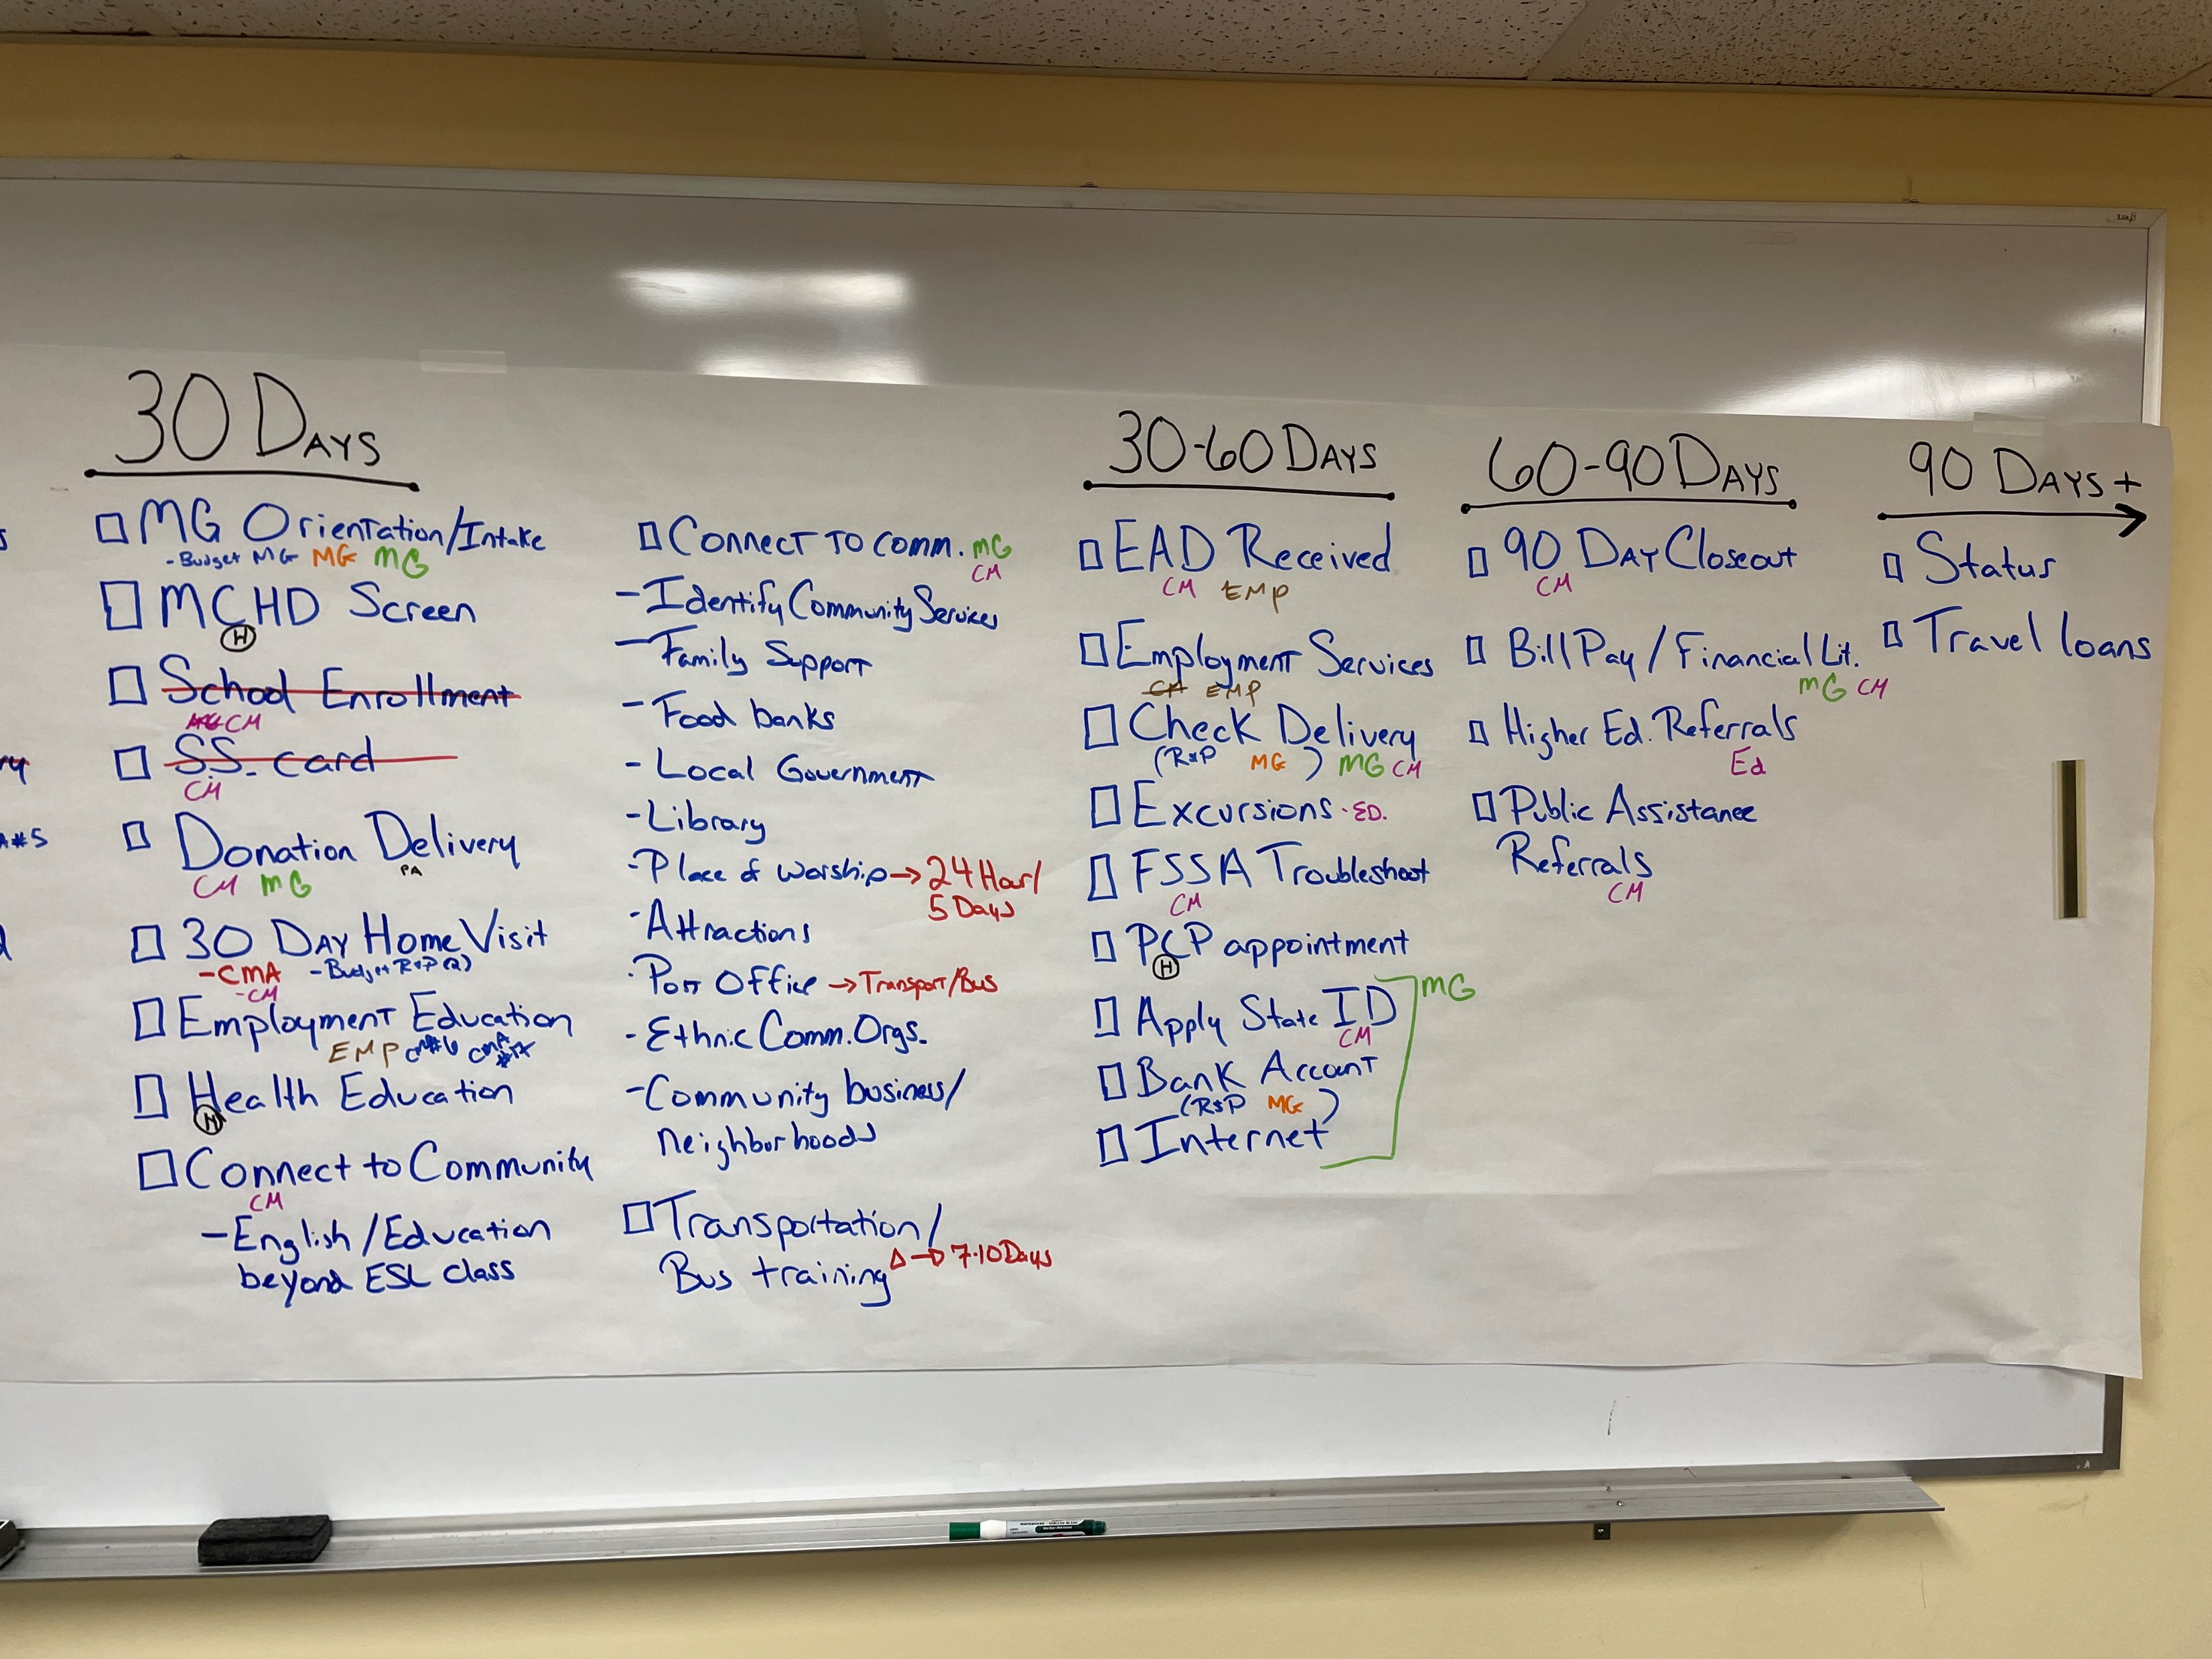 30 DAYS
MG Orientation/Intake
- Budget MG MG MG
MCHD Screen
H
School Enrollment
CM
SS. card
CM
Donation Delivery
CM MG PA
30 DAY Home Visit
- CMA - Budget R+P (2)
- CM
Employment Education
EMP
Health Education
H
Connect to Community
CM
- English / Education
beyond ESL class
Connect to comm. MG
CM
- Identify Community Services
- Family Support
- Food banks
- Local Government
- Library
- Place of worship → 24 Hour/
5 Days
- Attractions
- Post Office → Transport/Bus
- Ethnic Comm. Orgs.
- Community business/
neighborhoods
Transportation/
Bus training Δ → 7-10 Days
30-60 DAYS
EAD Received
CM EMP
Employment Services
EMP
Check Delivery
(R&P MG) MG CM
Excursions - ED.
FSSA Troubleshoot
CM
PCP appointment
H
Apply State ID MG
CM
Bank Account
(R&P MG)
Internet
60-90 DAYS
90 DAY Closeout
CM
Bill Pay / Financial Lit.
MG CM
Higher Ed. Referrals
Ed
Public Assistance
Referrals
CM
90 DAYS +
Status
Travel loans